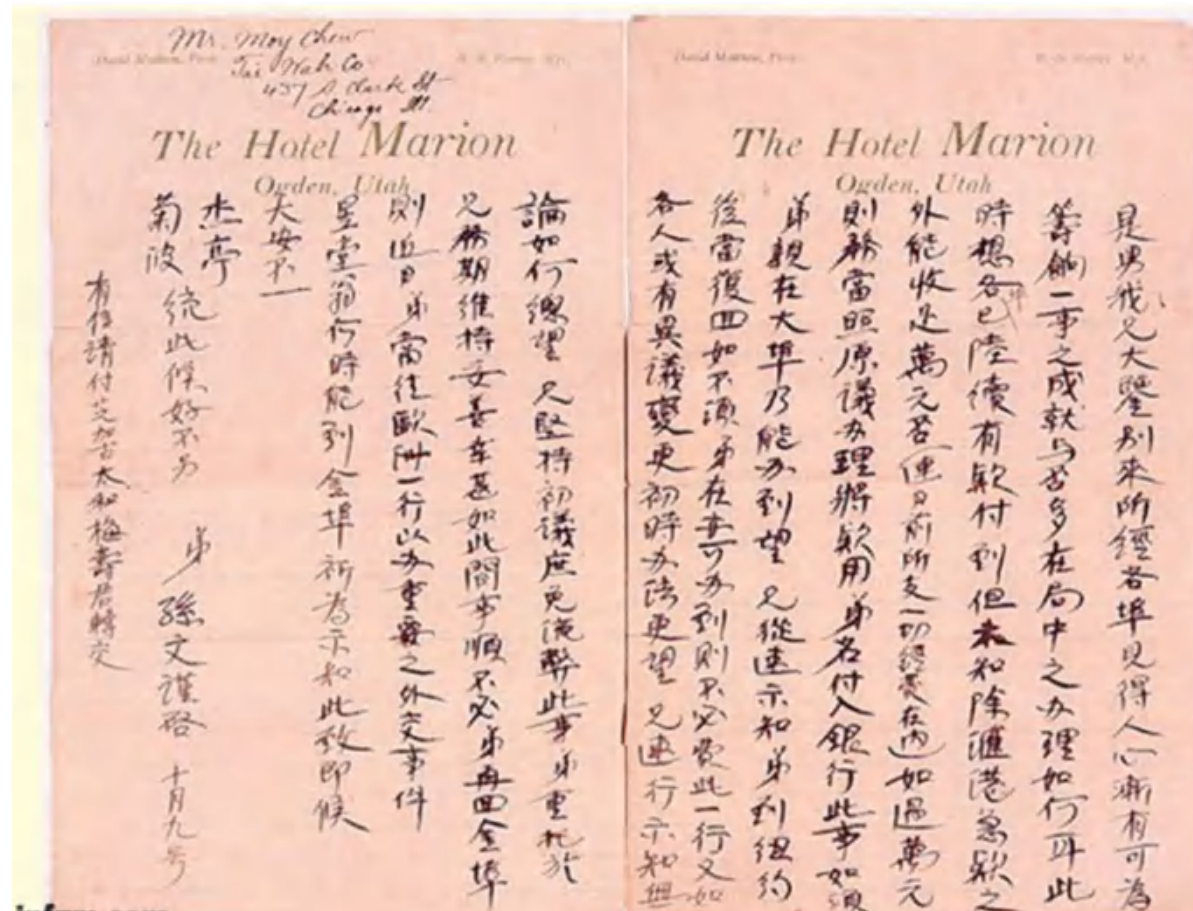 The Hotel Marion
Ogden, Utah
是男我兄大鑒別來所經各埠見得人心漸有可為
籌餉一事之成就与否多在局中之办理如何耳此
時想各埠已陸續有款付到但未知除滙港急款之
外能收足萬元否連日前所支一切經費在內如過萬元
則務當照原議办理將款用弟名付入銀行此事如須
弟親在大埠乃能办到望兄從速示知弟到紐約
後當復回如不須弟在亦可办到則不必費此一行又如
各人或有異議變更初時办法更望兄速行示知無
Mr. Moy Chew
Tai Wah Co
437 S. Clark St
Chicago Ill.
The Hotel Marion
Ogden, Utah
論如何總望兄堅持初議庶免流弊此事弟重托於
兄務期維持妥善幸甚如此間事順不必弟再回金埠
則近日弟當往歐洲一行以办重要之外交事件
星堂翁何時能到金埠祈為示知此致即候
大安不一
杰亭
菊波統此候好不另
弟孫文謹啓十月九号
有信請付芝加古太和梅壽君轉交